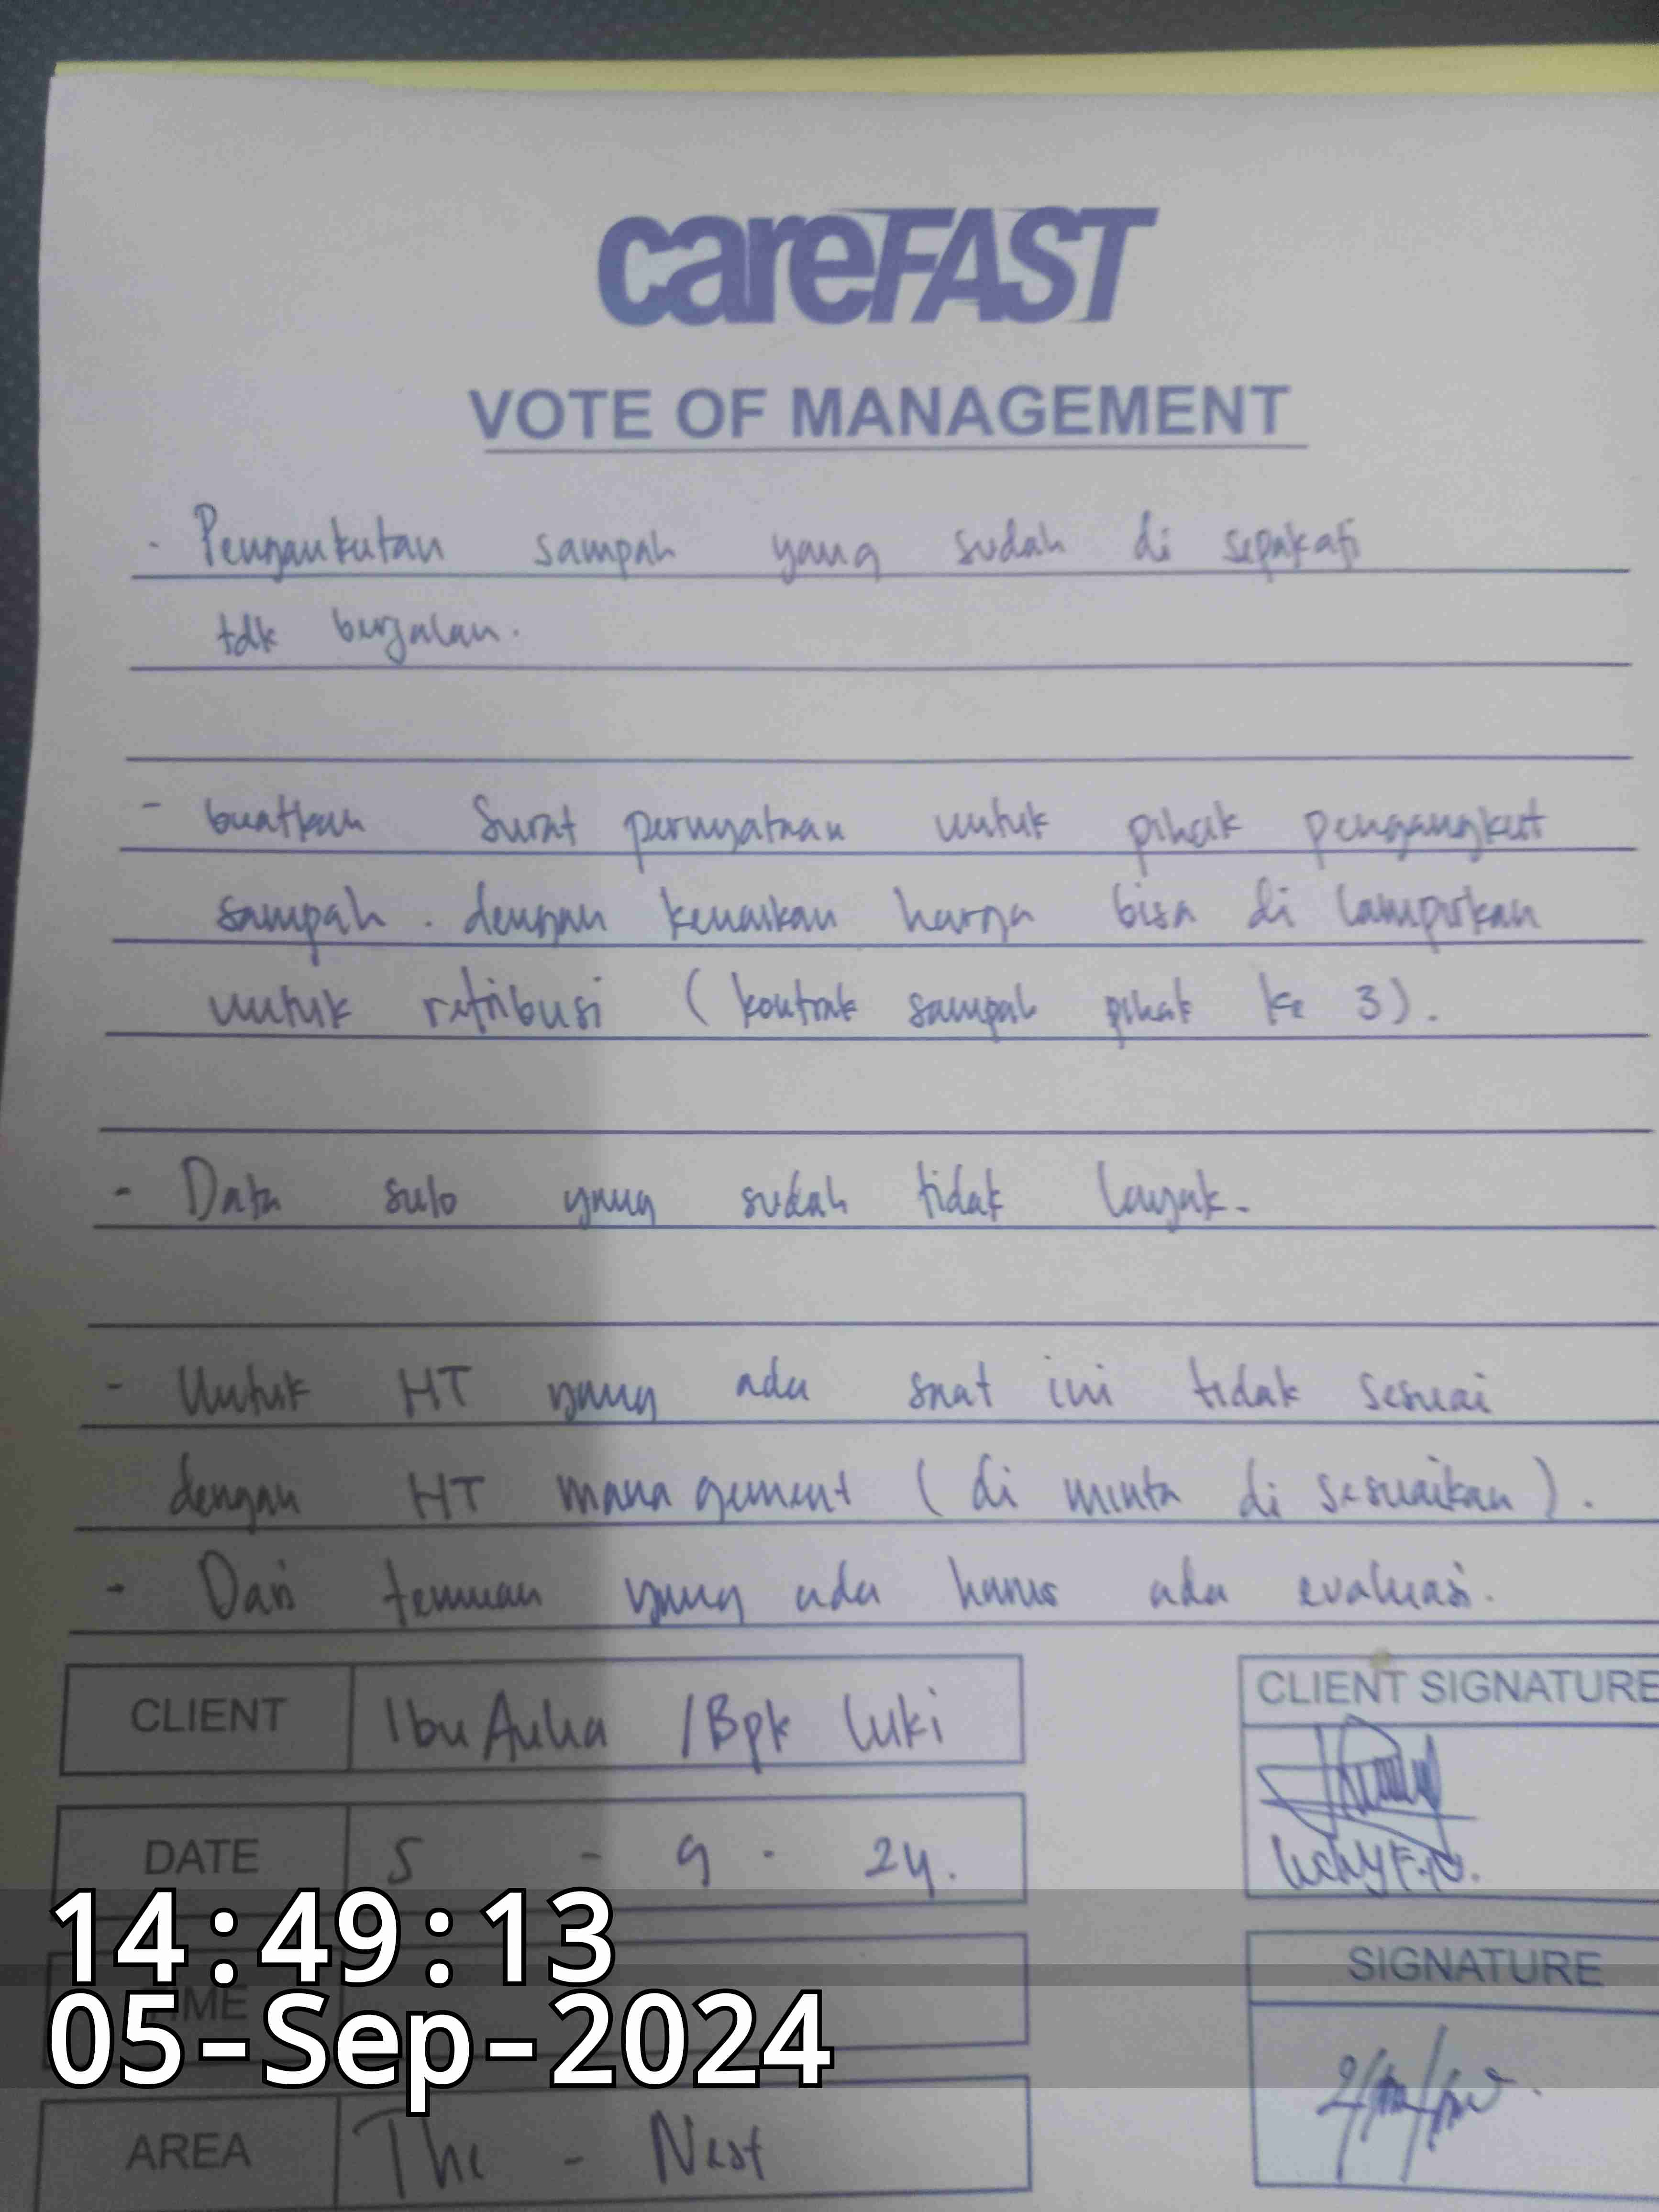 careFAST
VOTE OF MANAGEMENT
- Pengankutan sampah yang sudah di sepakati
tdk berjalan.
- buatkan Surat pernyataan untuk pihak pengangkut
sampah . dengan kenaikan harga bisa di lampirkan
untuk retribusi ( kontrak sampah pihak ke 3 ) .
- Data sulo yang sudah tidak layak.
- Untuk HT yang ada saat ini tidak sesuai
dengan HT management ( di minta di sesuaikan ) .
- Dari temuan yang ada harus ada evaluasi.
CLIENT Ibu Aulia / Bpk luki
CLIENT SIGNATURE
DATE 5 - 9 - 24.
14:49:13
05-Sep-2024
SIGNATURE
AREA The - Nest